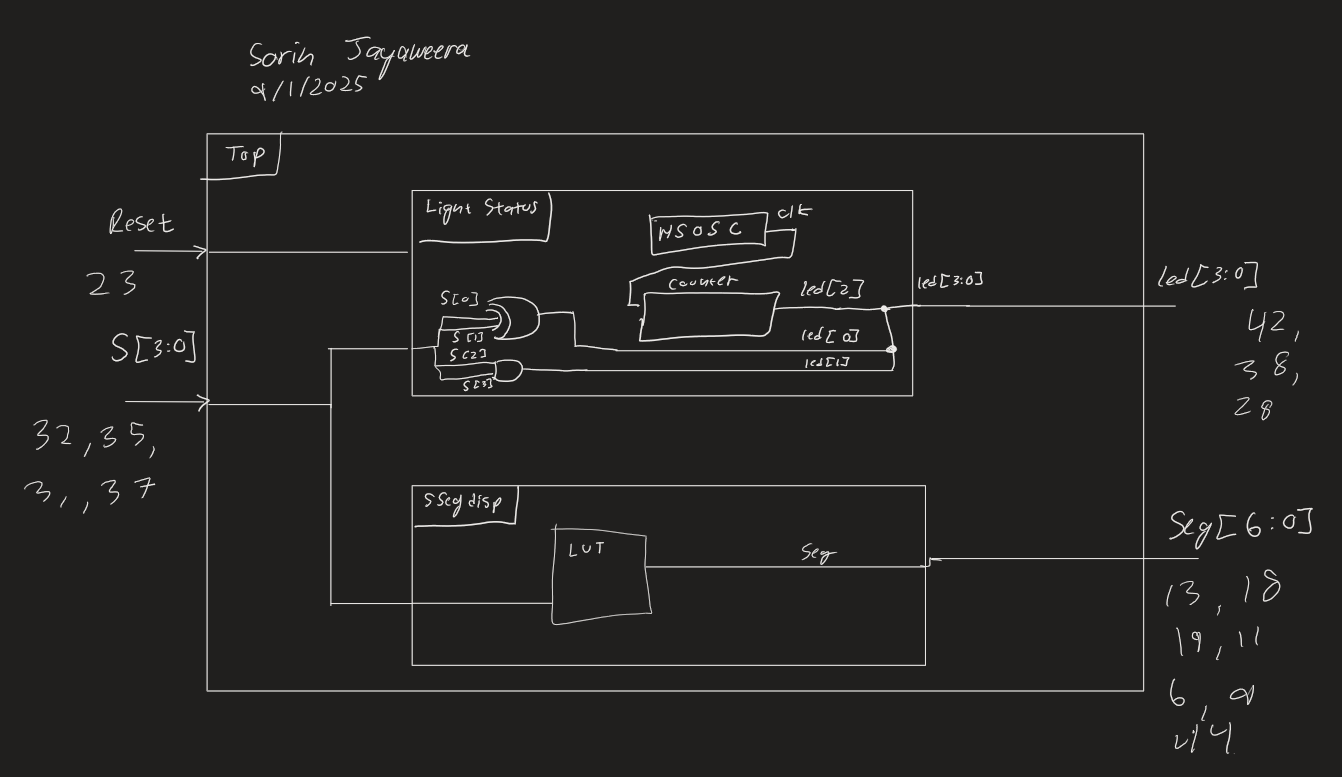 Sorin Jayaweera
9/1/2025
Top
Reset
23
S[3:0]
32,35,
31,37
Light Status
HSOSC
clk
counter
S[0]
S[1]
S[2]
S[3]
led[2]
led[0]
led[1]
led[3:0]
led[3:0]
42,
38,
28
SSegdisp
LUT
Seg
Seg[6:0]
13, 18
19, 11
6, 9